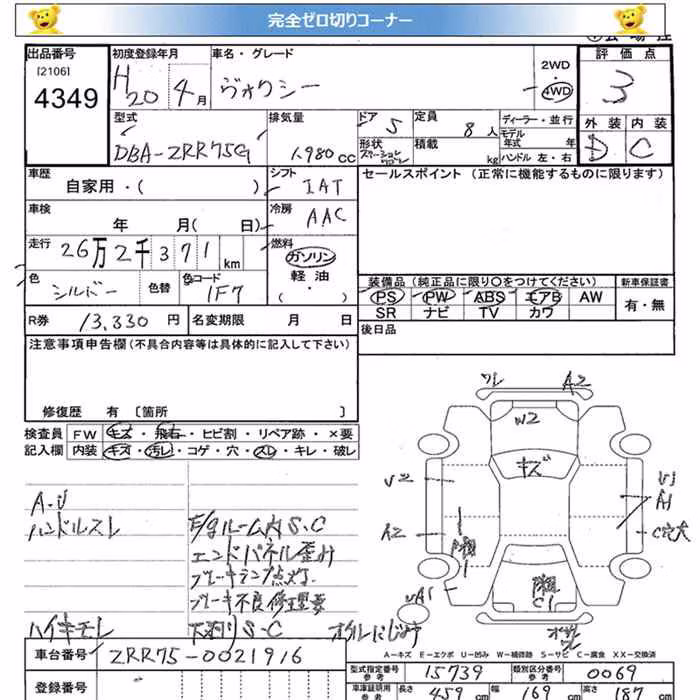 完全ゼロ切りコーナー
出品番号
[2106]
4349
初度登録年月
H20 4月
車名・グレード
ヴォクシー
2WD
・
4WD
評価点
3
外装 内装
D C
型式
DBA-ZRR75G
排気量
1.980 cc
ドア 5
形状
定員 8人
積載 kg
ディーラー・並行
モデル
年式 年
ハンドル 左・右
車歴
自家用・( )
シフト
IAT
セールスポイント (正常に機能するものに限ります)
車検
年 月( 日)
冷房
AAC
走行
26万2千371km
燃料
ガソリン
軽油
( ・ )
色
シルバー
色替
色コード
1F7
装備品 (純正品に限り〇をつけてください)
PS PW ABS エアB AW
SR ナビ TV カワ
新車保証書
有・無
R券 13,330 円
名変期限 月 日
後日品
注意事項申告欄 (不具合内容等は具体的に記入して下さい)
修復歴 有 〔箇所 〕
検査員 FW キズ・飛石・ヒビ割・リペア跡・×要
記入欄 内装 キズ・汚レ・コゲ・穴・スレ・キレ・破レ
A・U
ハンドルスレ
E/gルーム内S・C
エンドパネル歪み
ブレーキランプ点灯
ブレーキ不良修理要
ハイキモレ
下廻りS・C
オイルにじみ
ワレ A2
W2
キズ
U2
A2
UA1
U1
A1
C穴大
C1
A-キズ E-エクボ U-凹み W-補修跡 S-サビ C-腐食 XX-交換済
車台番号
ZRR75-0021916
登録番号
型式指定番号
参考
15739
類別区分番号
参考
0069
車庫証明用
参考
長さ 459 cm
幅 169 cm
高さ 187 cm